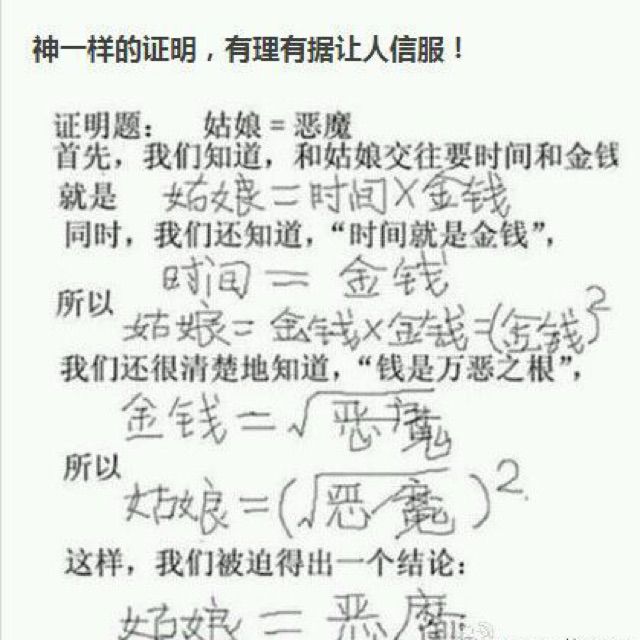 神一样的证明，有理有据让人信服！
证明题： 姑娘=恶魔
首先，我们知道，和姑娘交往要时间和金钱
就是 姑娘=时间×金钱
同时，我们还知道，“时间就是金钱”，
时间=金钱
所以
姑娘=金钱×金钱=(金钱)²
我们还很清楚地知道，“钱是万恶之根”，
金钱=√恶魔
所以
姑娘=(√恶魔)².
这样，我们被迫得出一个结论：
姑娘=恶魔